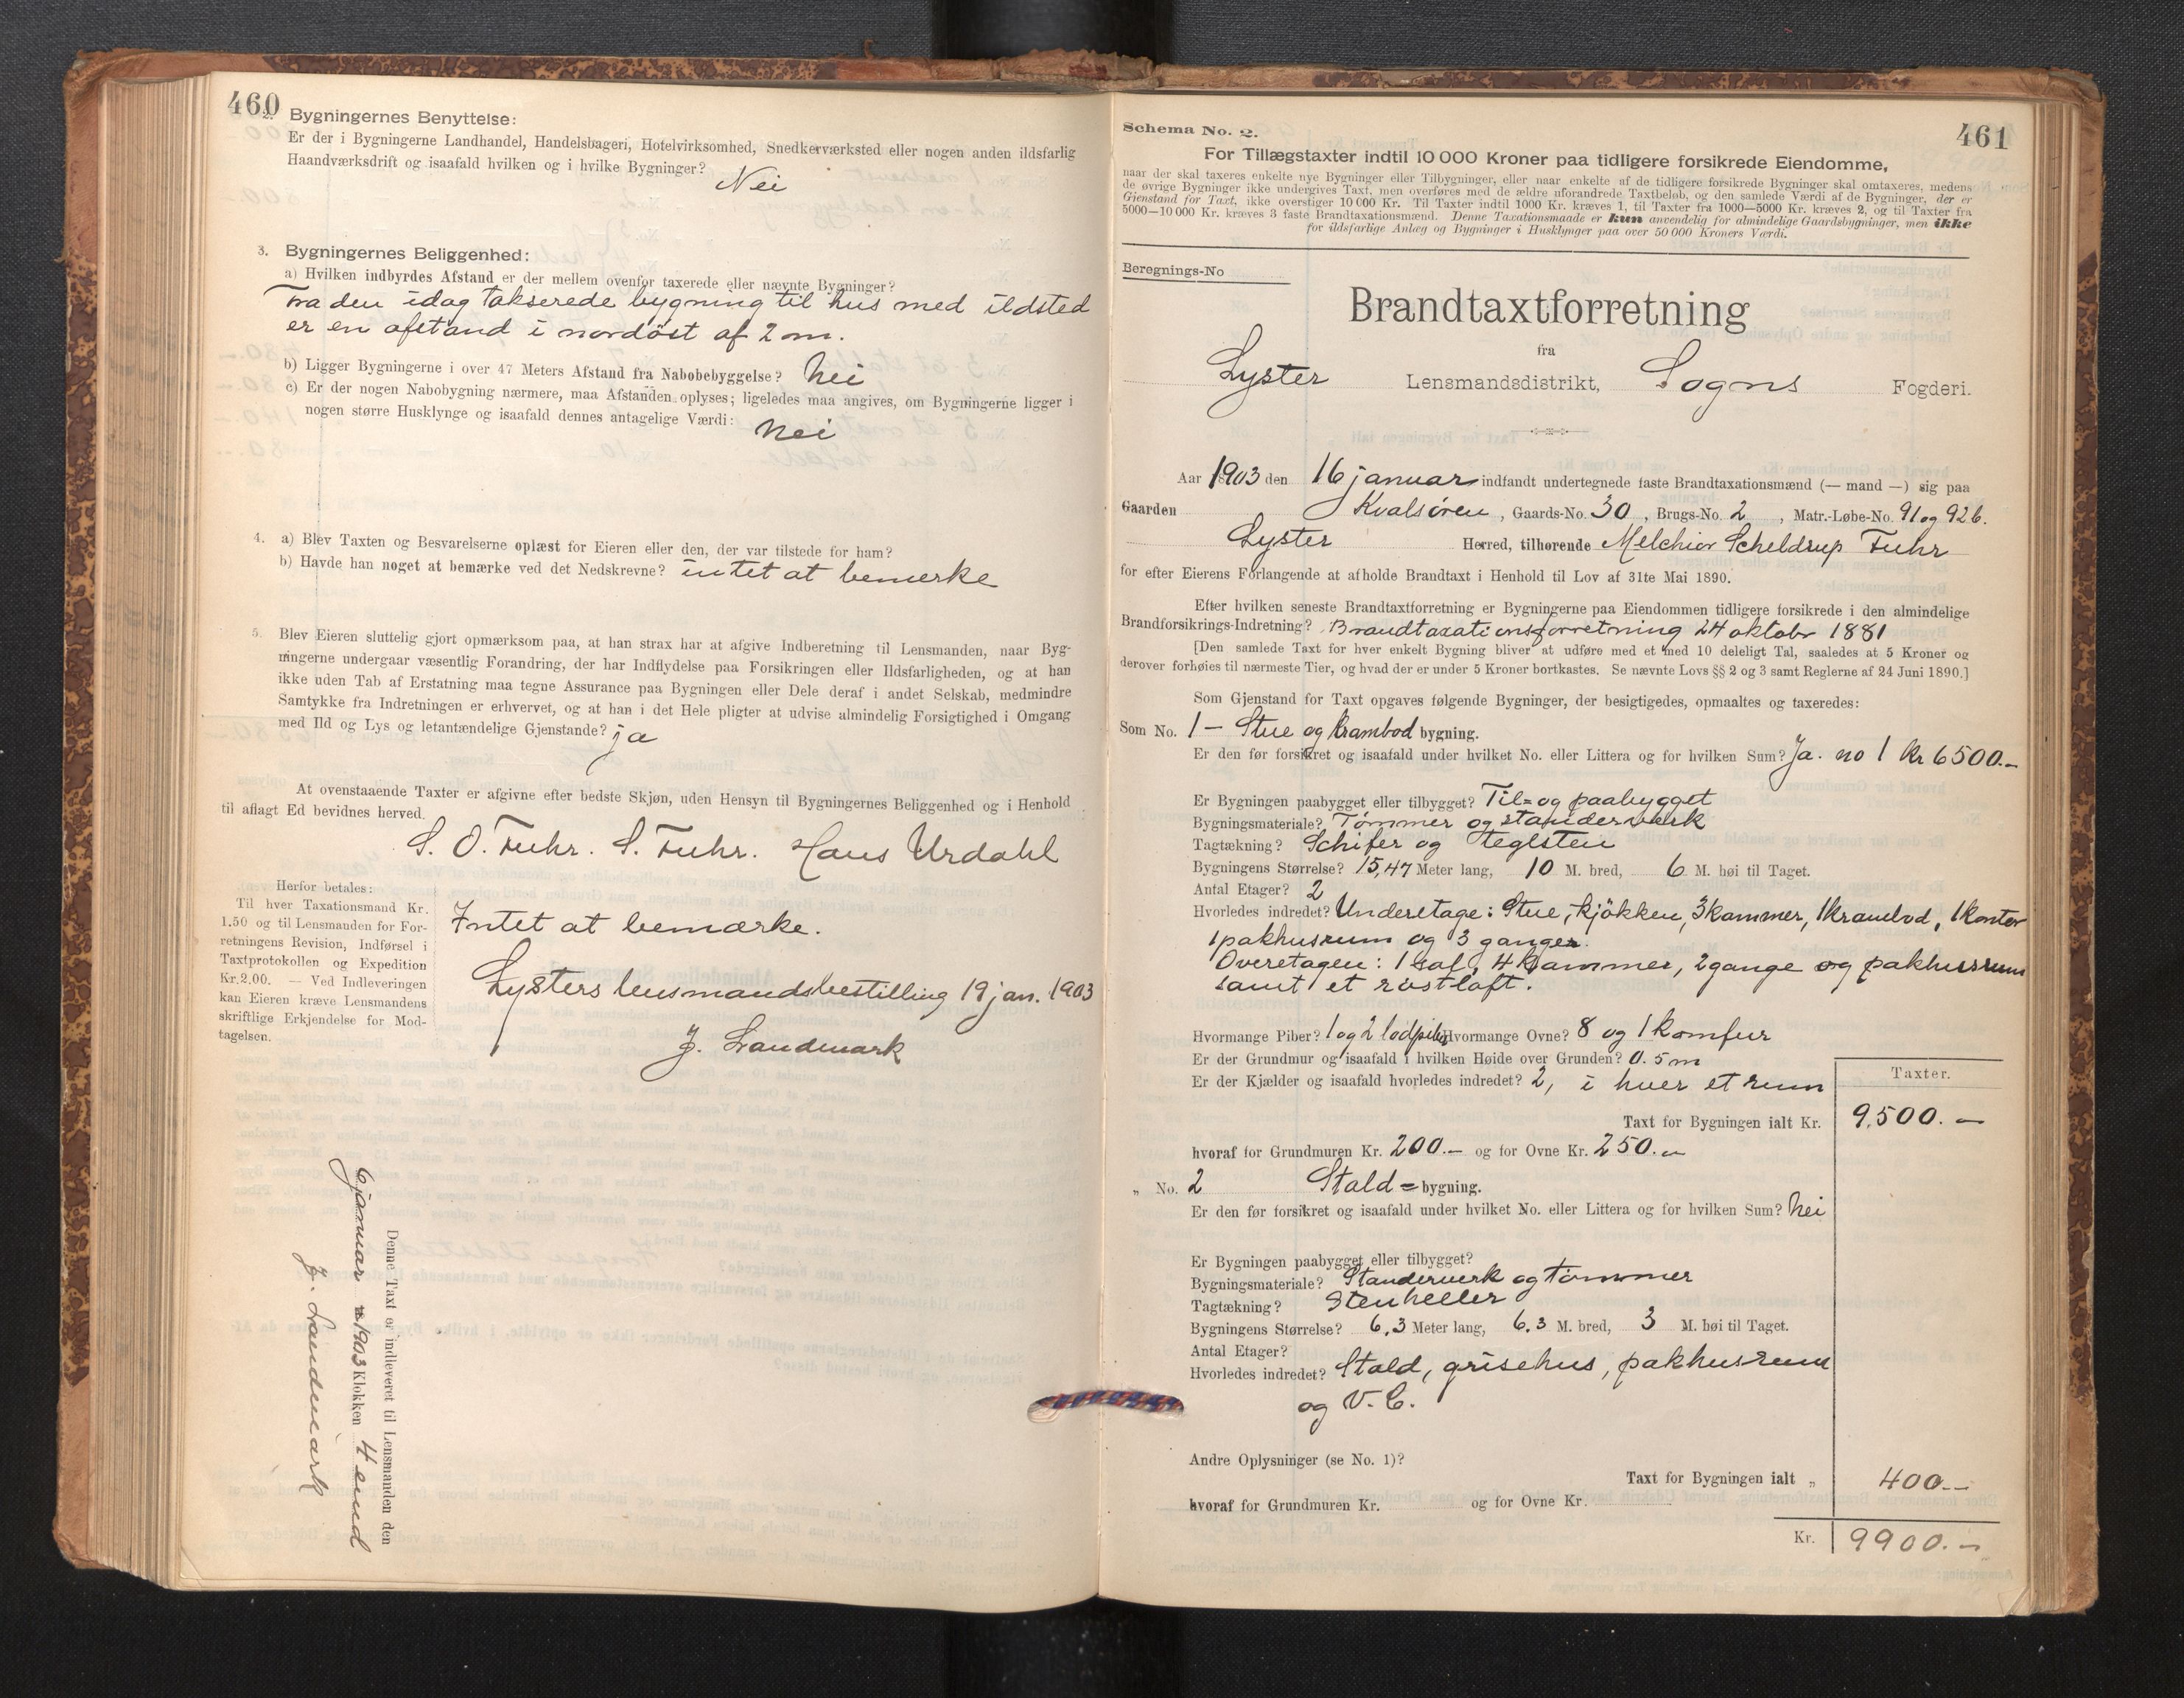 460
2. Bygningernes Benyttelse:
Er der i Bygningerne Landhandel, Handelsbageri, Hotelvirksomhed, Snedkerværksted eller nogen anden ildsfarlig
Haandværksdrift og isaafald hvilken og i hvilke Bygninger?
Nei
3. Bygningernes Beliggenhed:
a) Hvilken indbyrdes Afstand er der mellem ovenfor taxerede eller nævnte Bygninger?
Fra den idag takserede bygning til hus med ildsted
er en afstand i nordöst af 2 m.
b) Ligger Bygningerne i over 47 Meters Afstand fra Nabobebyggelse? Nei
c) Er der nogen Nabobygning nærmere, maa Afstanden oplyses; ligeledes maa angives, om Bygningerne ligger i
nogen større Husklynge og isaafald dennes antagelige Værdi: Nei
4. a) Blev Taxten og Besvarelserne oplæst for Eieren eller den, der var tilstede for ham?
b) Havde han noget at bemærke ved det Nedskrevne? intet at bemerke
5. Blev Eieren sluttelig gjort opmærksom paa, at han strax har at afgive Indberetning til Lensmanden, naar Byg-
ningerne undergaar væsentlig Forandring, der har Indflydelse paa Forsikringen eller Ildsfarligheden, og at han
ikke uden Tab af Erstatning maa tegne Assurance paa Bygningen eller Dele deraf i andet Selskab, medmindre
Samtykke fra Indretningen er erhvervet, og at han i det Hele pligter at udvise almindelig Forsigtighed i Omgang
med Ild og Lys og letantændelige Gjenstande? ja
At ovenstaaende Taxter er afgivne efter bedste Skjøn, uden Hensyn til Bygningernes Beliggenhed og i Henhold
til aflagt Ed bevidnes herved.
S. O. Fuhr. S. Fuhr. Hans Urdahl
Herfor betales:
Til hver Taxationsmand Kr.
1.50 og til Lensmanden for For-
retningens Revision, Indførsel i
Taxtprotokollen og Expedition
Kr. 2.00. — Ved Indleveringen
kan Eieren kræve Lensmandens
skriftlige Erkjendelse for Mod-
tagelsen.
Intet at bemærke.
Lysters lensmandsbestilling 19 jan. 1903
J. Landmark
Denne Taxt er indleveret til Lensmanden den
januar 1903 Klokken 4 emd
J. Landmark
461
Schema No. 2.
For Tillægstaxter indtil 10 000 Kroner paa tidligere forsikrede Eiendomme,
naar der skal taxeres enkelte nye Bygninger eller Tilbygninger, eller naar enkelte af de tidligere forsikrede Bygninger skal omtaxeres, medens
de øvrige Bygninger ikke undergives Taxt, men overføres med de ældre uforandrede Taxtbeløb, og den samlede Værdi af de Bygninger, der er
Gjenstand for Taxt, ikke overstiger 10 000 Kr. Til Taxter indtil 1000 Kr. kræves 1, til Taxter fra 1000—5000 Kr. kræves 2, og til Taxter fra
5000—10 000 Kr. kræves 3 faste Brandtaxationsmænd. Denne Taxationsmaade er kun anvendelig for almindelige Gaardsbygninger, men ikke
for ildsfarlige Anlæg og Bygninger i Husklynger paa over 50 000 Kroners Værdi.
Beregnings-No
Brandtaxtforretning
fra
Lyster Lensmandsdistrikt, Sogns Fogderi.
Aar 1903 den 16 januar indfandt undertegnede faste Brandtaxationsmænd (— mand —) sig paa
Gaarden Kvalsören, Gaards-No. 30, Brugs-No. 2, Matr.-Løbe-No. 91 og 92 b.
Lyster Herred, tilhørende Melchior Scheldrup Fuhr
for efter Eierens Forlangende at afholde Brandtaxt i Henhold til Lov af 31te Mai 1890.
Efter hvilken seneste Brandtaxtforretning er Bygningerne paa Eiendommen tidligere forsikrede i den almindelige
Brandforsikrings-Indretning? Brandtaxationsforretning 24 oktobr 1881
[Den samlede Taxt for hver enkelt Bygning bliver at udføre med et med 10 deleligt Tal, saaledes at 5 Kroner og
derover forhøies til nærmeste Tier, og hvad der er under 5 Kroner bortkastes. Se nævnte Lovs §§ 2 og 3 samt Reglerne af 24 Juni 1890.]
Som Gjenstand for Taxt opgaves følgende Bygninger, der besigtigedes, opmaaltes og taxeredes:
Som No. 1 — Stue og krambod bygning.
Er den før forsikret og isaafald under hvilket No. eller Littera og for hvilken Sum? Ja. no 1 kr 6500.–
Er Bygningen paabygget eller tilbygget? Til= og paabygget
Bygningsmateriale? Tömmer og standerverk
Tagtækning? Schifer og teglsten
Bygningens Størrelse? 15,47 Meter lang, 10 M. bred, 6 M. høi til Taget.
Antal Etager? 2
Hvorledes indredet? Underetage: Stue, kjökken, 3 kammer, 1 krambod, 1 kontor
1 pakhusrum og 3 ganger.
Overetagen: 1 sal, 4 kammer, 2 gange og pakhusrum
samt et röstloft.
Hvormange Piber? 1 og 2 lodpiber Hvormange Ovne? 8 og 1 komfur
Er der Grundmur og isaafald i hvilken Høide over Grunden? 0.5 m
Er der Kjælder og isaafald hvorledes indredet? 2, i hver et rum
Taxter.
Taxt for Bygningen ialt Kr. 9,500.–
hvoraf for Grundmuren Kr. 200.– og for Ovne Kr. 250.–
„ No. 2 Stald= bygning.
Er den før forsikret og isaafald under hvilket No. eller Littera og for hvilken Sum? Nei
Er Bygningen paabygget eller tilbygget?
Bygningsmateriale? Standerverk og tömmer
Tagtækning? Stenheller
Bygningens Størrelse? 6.3 Meter lang, 6.3 M. bred, 3 M. høi til Taget.
Antal Etager?
Hvorledes indredet? Stald, grisehus, pakhusrum
og V. C.
Andre Oplysninger (se No. 1)?
Taxt for Bygningen ialt „ 400.–
hvoraf for Grundmuren Kr. og for Ovne Kr.
Kr. 9900.–